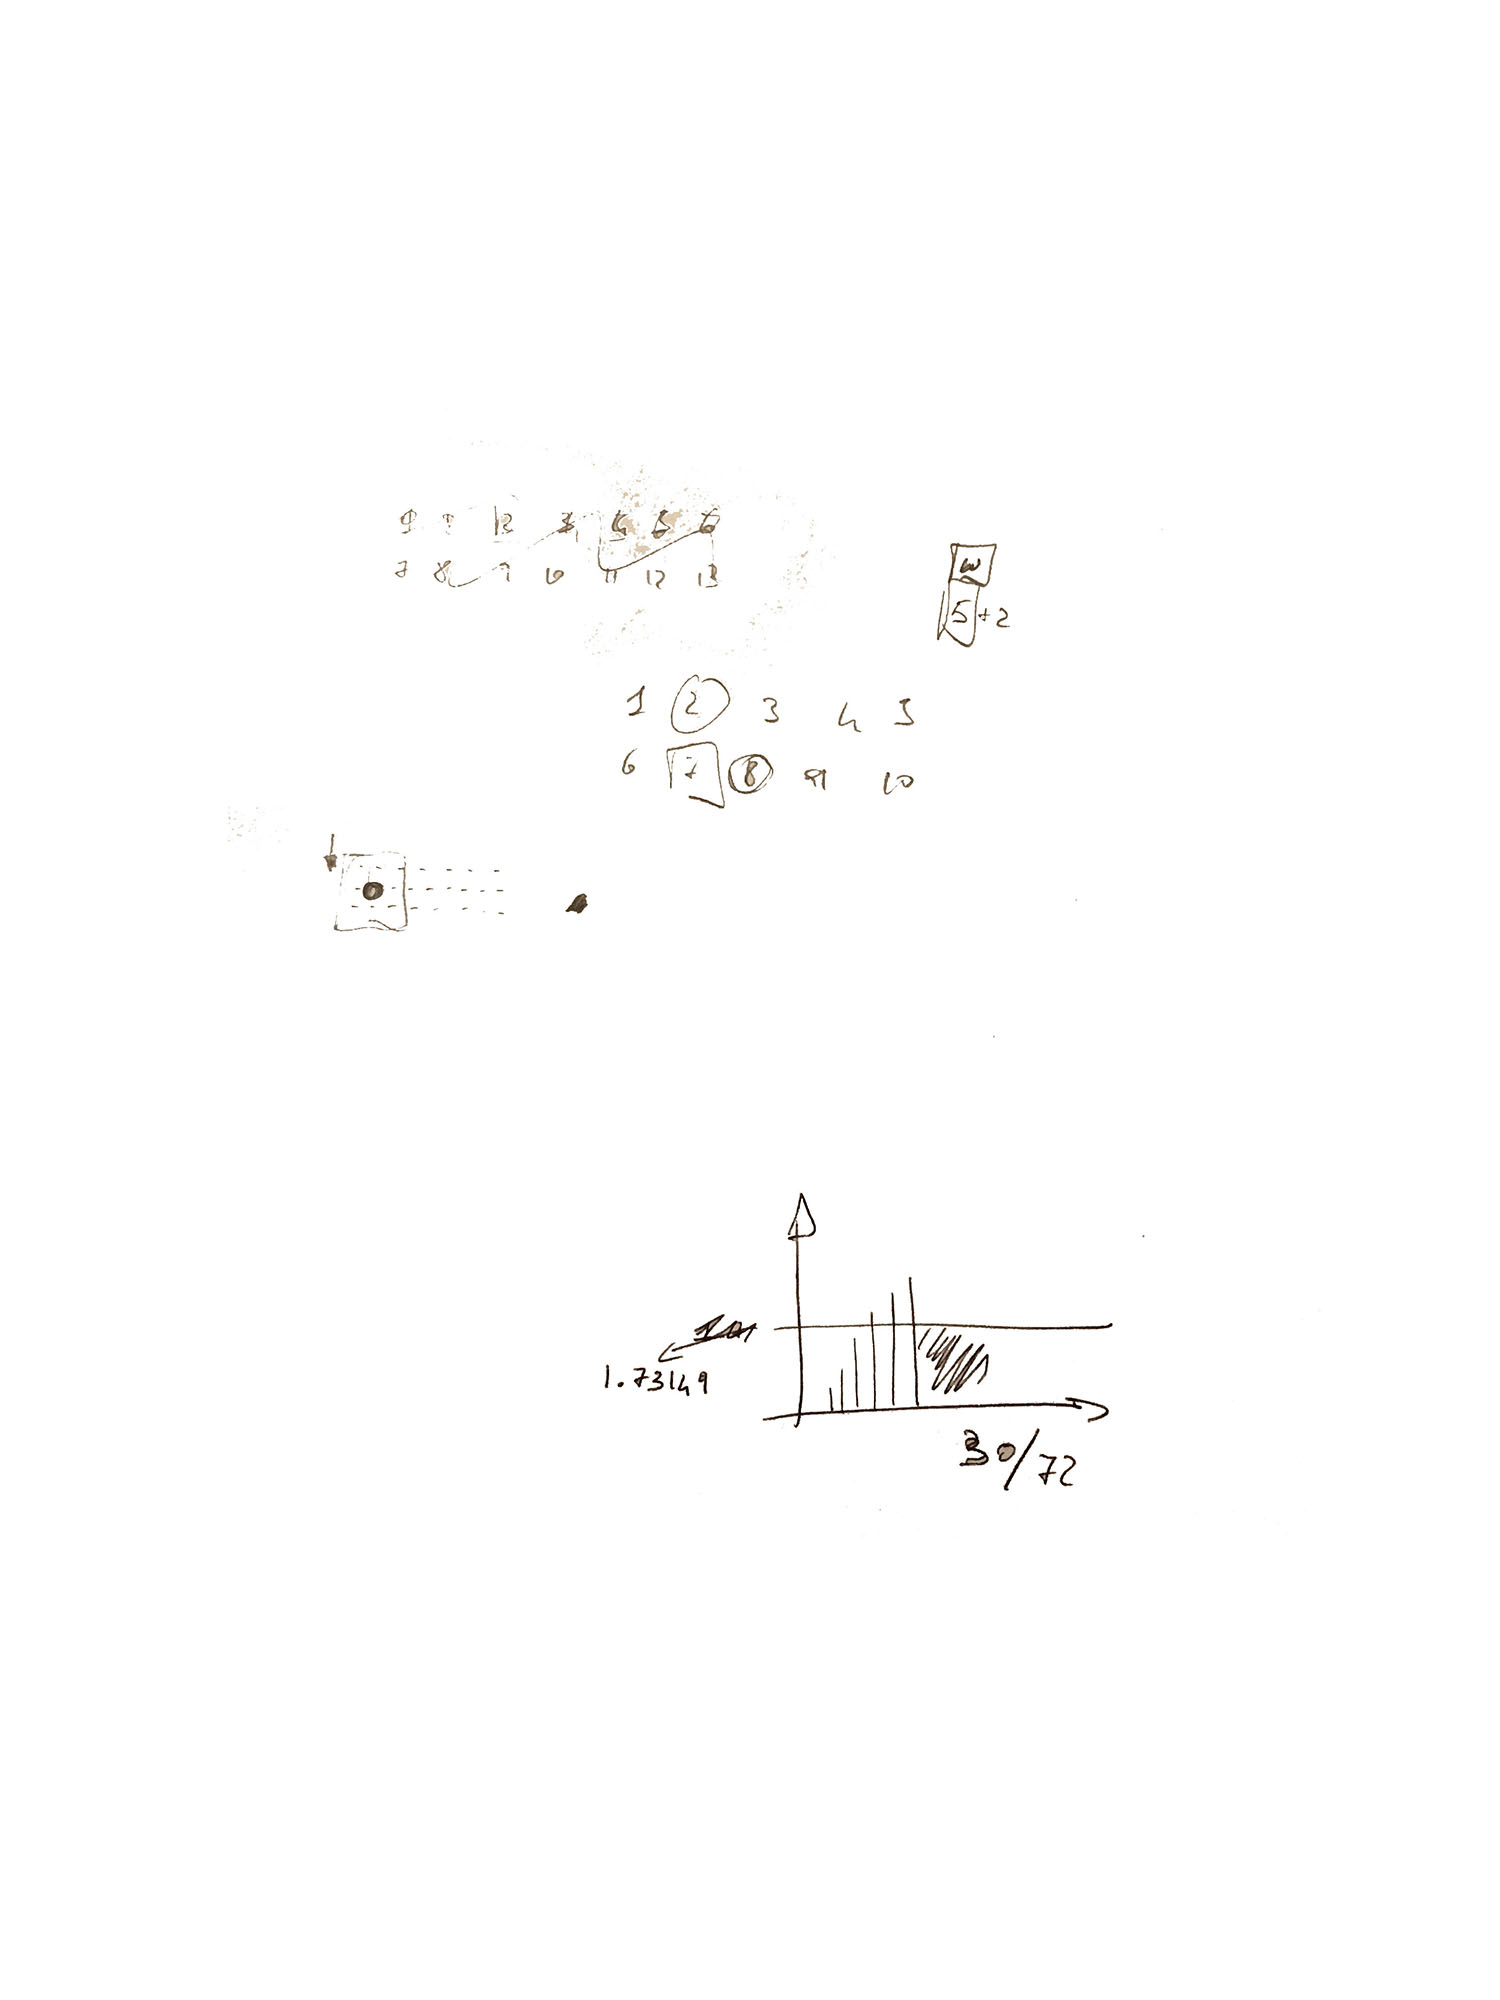 7 8 9 10 11 12 13
w
5 + 2
1 2 3 4 5
6 7 8 9 10
1.73149
30/72